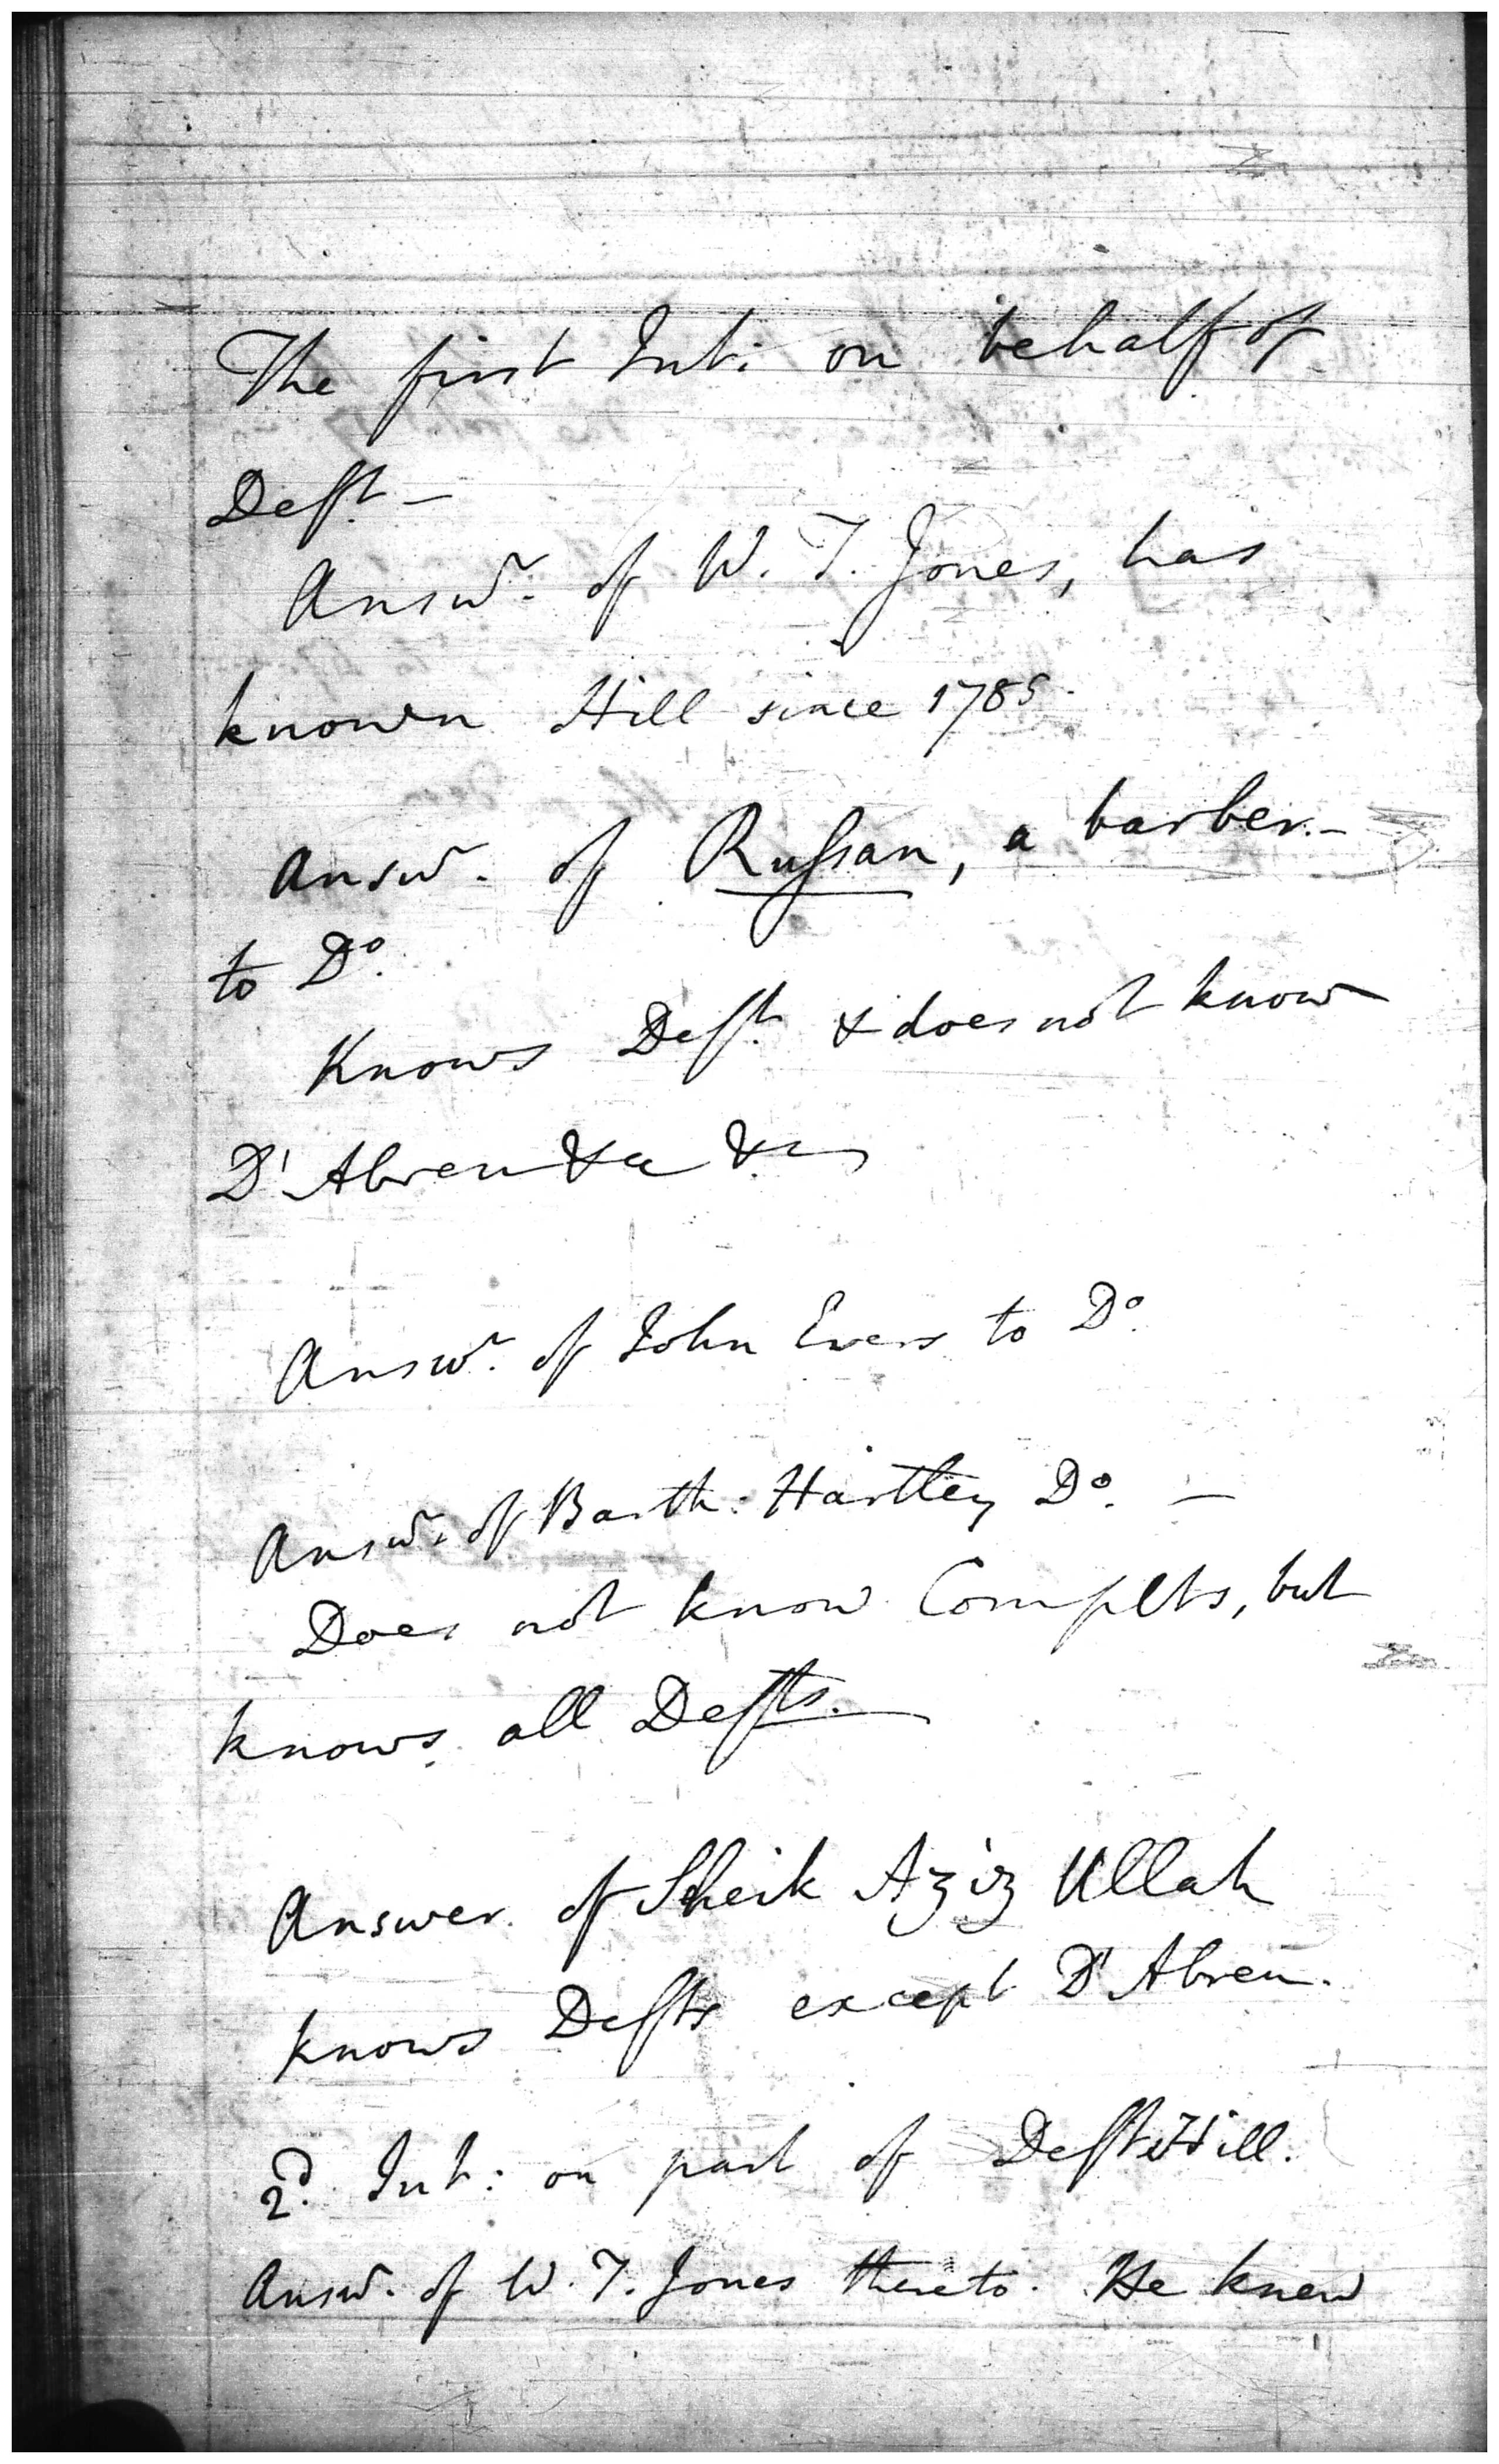 The first Int: on behalf of
Deft. —
Answr. of W. T. Jones, has
known Hill since 1785.
Answr. of Russan, a barber. —
to Do.
Knows Deft. & does not know
D'Abreu &c &c
Answr. of John Evers to Do.
Answr. of Barth: Hartley Do. —
Does not know Complts, but
knows all Defts. —
Answer. of Sheik Aziz Ullah
knows Defts except D'Abreu.
2d. Int: on part of Deft Hill.
Answr. of W. T. Jones thereto. He knew